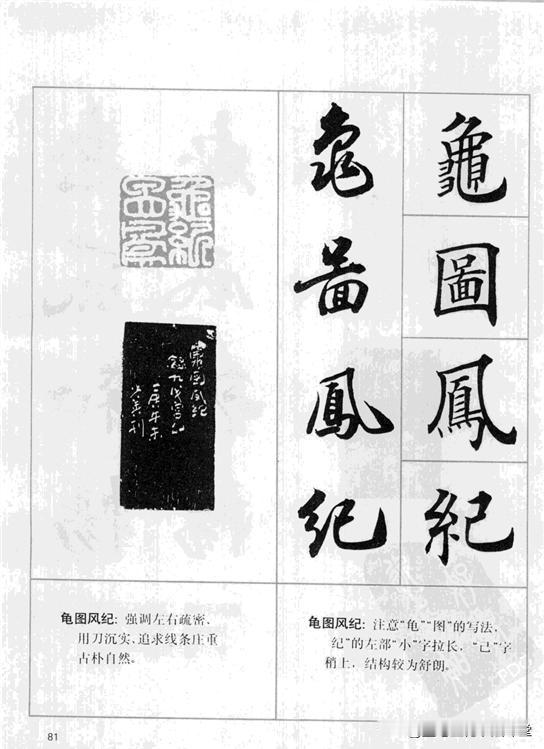 龜
圖
鳳
紀
龜
啚
鳳
紀
龟图风纪：强调左右疏密、
用刀沉实，追求线条庄重
古朴自然。
龟图风纪：注意“龟”“图”的写法，
纪”的左部“小”字拉长，“己”字
稍上，结构较为舒朗。
81